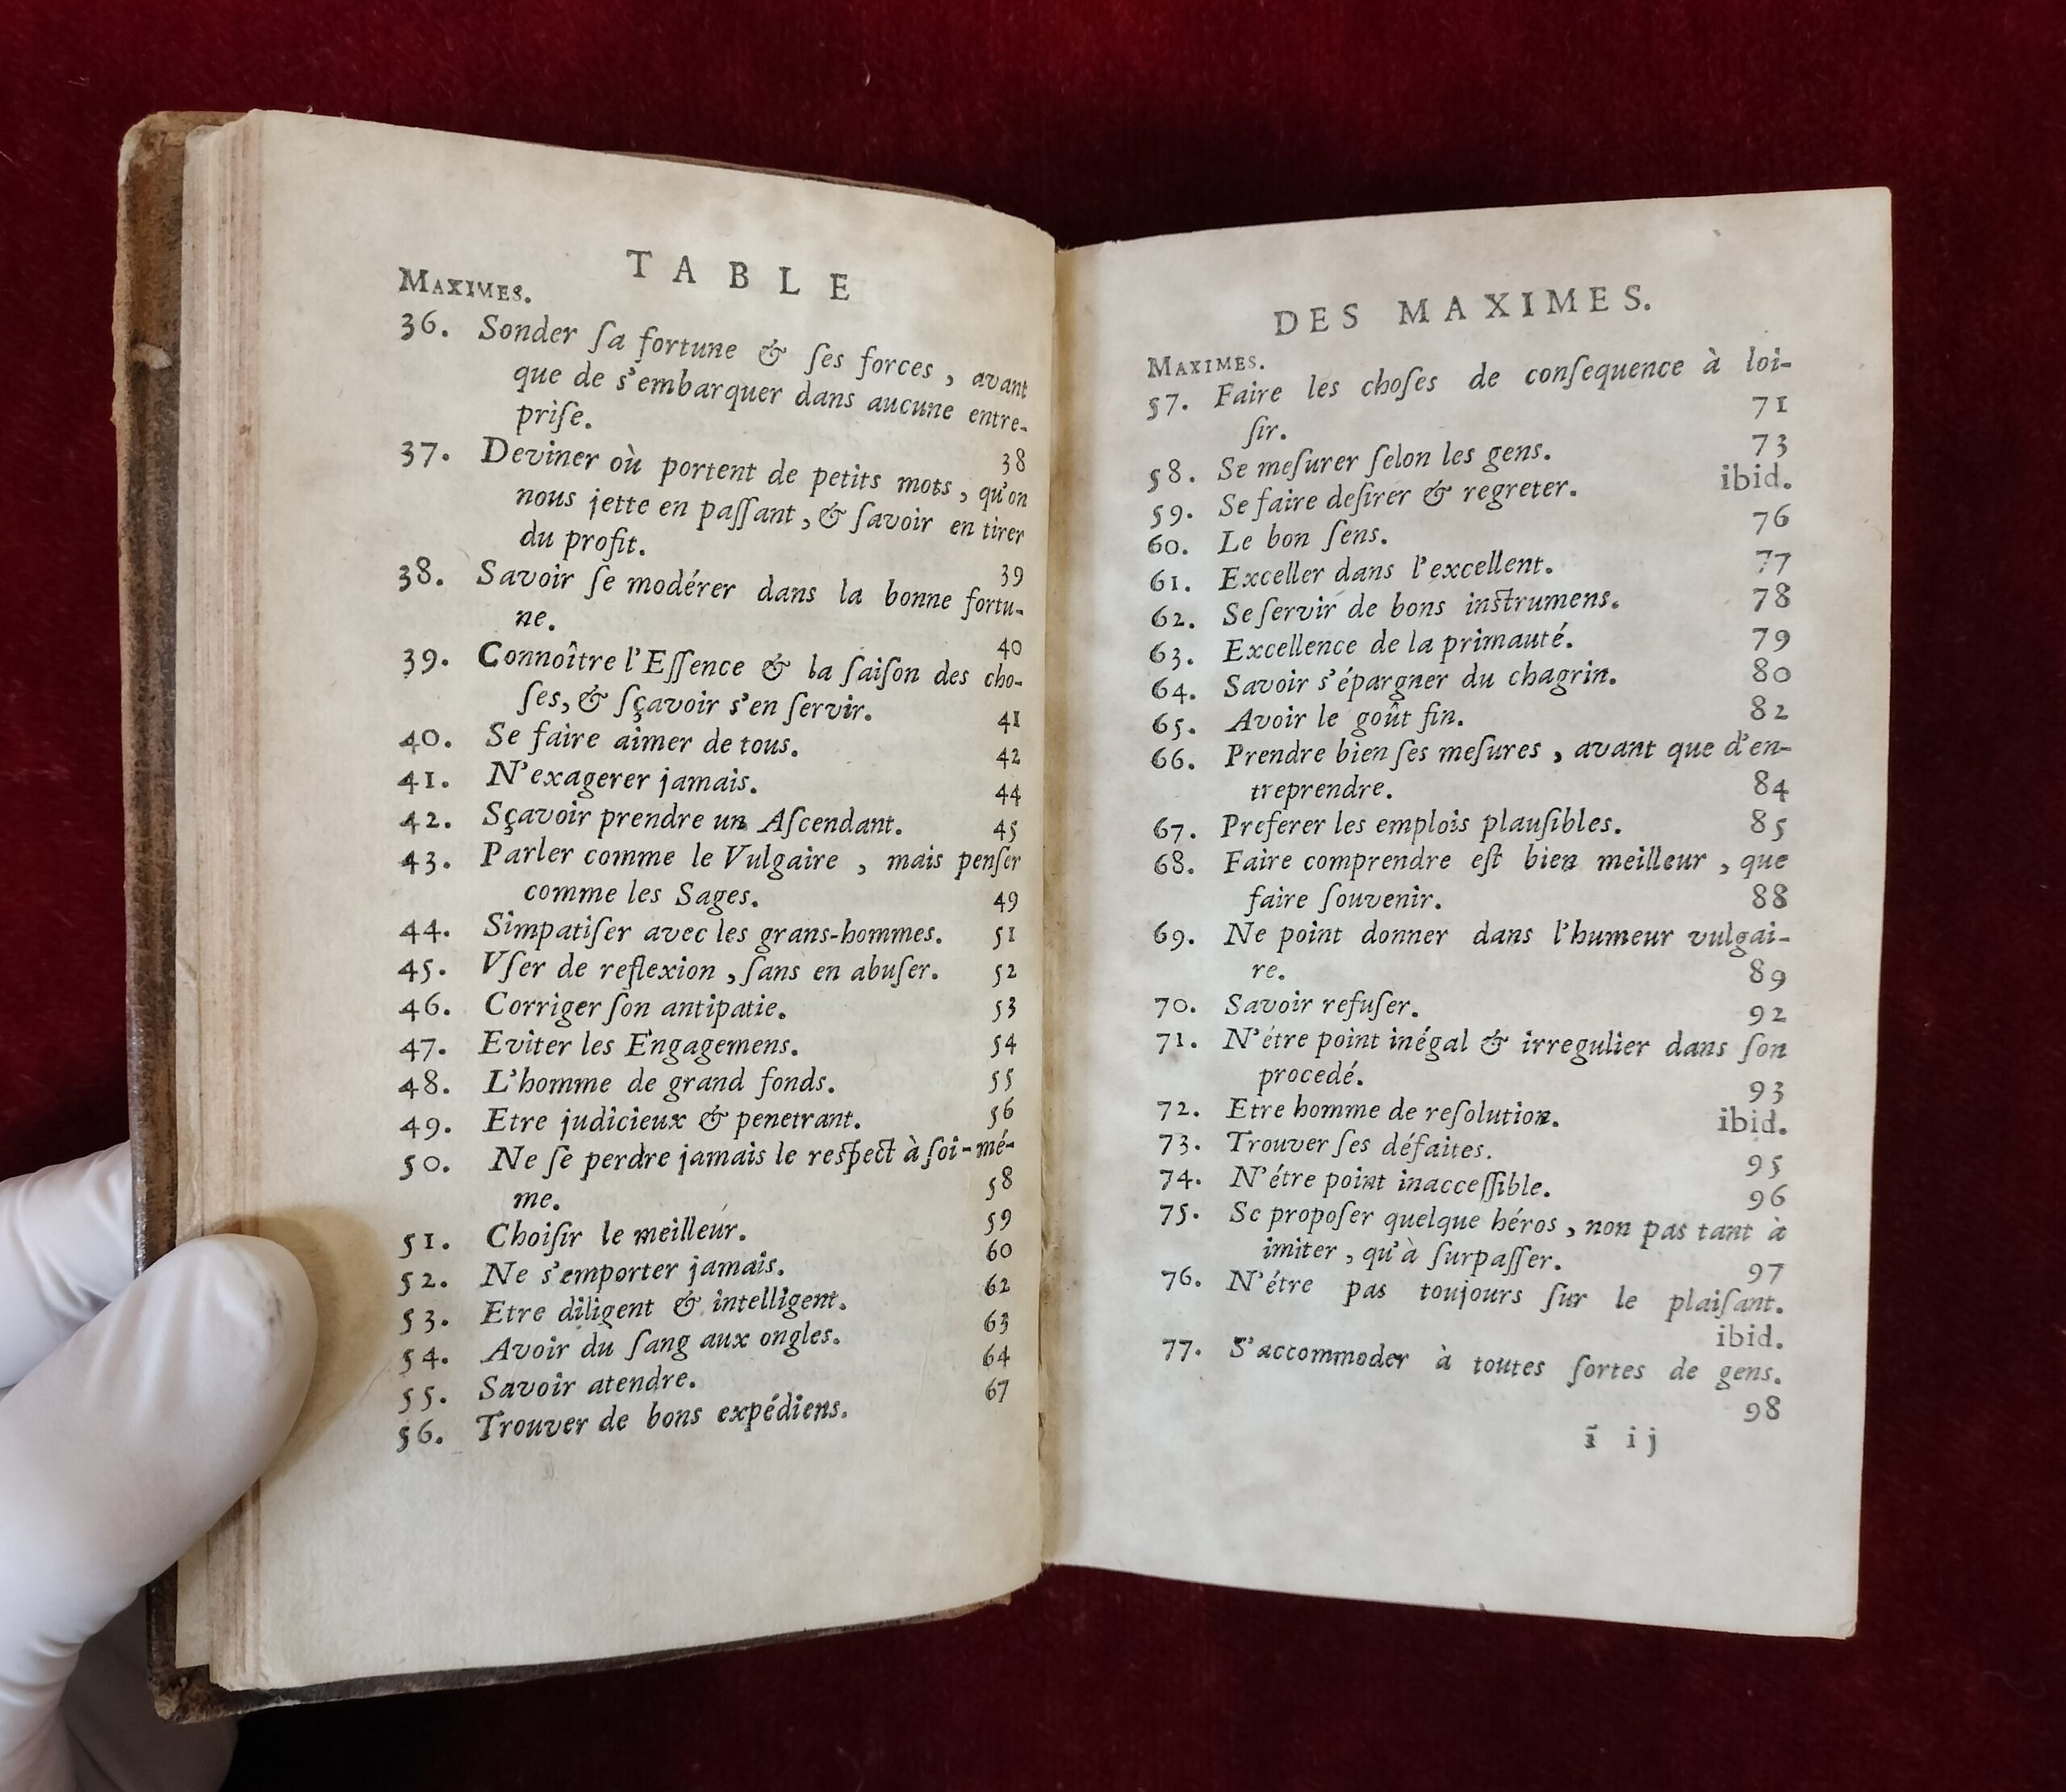 TABLE
MAXIMES.
36. Sonder ſa fortune & ſes forces, avant
que de s'embarquer dans aucune entre-
priſe. 38
37. Deviner où portent de petits mots, qu'on
nous jette en paſſant, & ſavoir en tirer
du profit. 39
38. Savoir ſe modérer dans la bonne fortu-
ne. 40
39. Connoître l'Eſſence & la ſaiſon des cho-
ſes, & ſçavoir s'en ſervir. 41
40. Se faire aimer de tous. 42
41. N'exagerer jamais. 44
42. Sçavoir prendre un Aſcendant. 45
43. Parler comme le Vulgaire, mais penſer
comme les Sages. 49
44. Simpatiſer avec les grans-hommes. 51
45. Vſer de reflexion, ſans en abuſer. 52
46. Corriger ſon antipatie. 53
47. Eviter les Engagemens. 54
48. L'homme de grand fonds. 55
49. Etre judicieux & penetrant. 56
50. Ne ſe perdre jamais le reſpect à ſoi-mé-
me. 58
51. Choiſir le meilleur. 59
52. Ne s'emporter jamais. 60
53. Etre diligent & intelligent. 62
54. Avoir du ſang aux ongles. 63
55. Savoir atendre. 64
56. Trouver de bons expédiens. 67
DES MAXIMES.
MAXIMES.
57. Faire les choſes de conſequence à loi-
ſir. 71
58. Se meſurer ſelon les gens. 73
59. Se faire deſirer & regreter. ibid.
60. Le bon ſens. 76
61. Exceller dans l'excellent. 77
62. Se ſervir de bons inſtrumens. 78
63. Excellence de la primauté. 79
64. Savoir s'épargner du chagrin. 80
65. Avoir le goût fin. 82
66. Prendre bien ſes meſures, avant que d'en-
treprendre. 84
67. Preferer les emplois plauſibles. 85
68. Faire comprendre eſt bien meilleur, que
faire ſouvenir. 88
69. Ne point donner dans l'humeur vulgai-
re. 89
70. Savoir refuſer. 92
71. N'étre point inégal & irregulier dans ſon
procedé. 93
72. Etre homme de reſolution. ibid.
73. Trouver ſes défaites. 95
74. N'étre point inacceſſible. 96
75. Se propoſer quelque héros, non pas tant à
imiter, qu'à ſurpaſſer. 97
76. N'étre pas toujours ſur le plaiſant.
ibid.
77. S'accommoder à toutes ſortes de gens.
98
ĩ ij